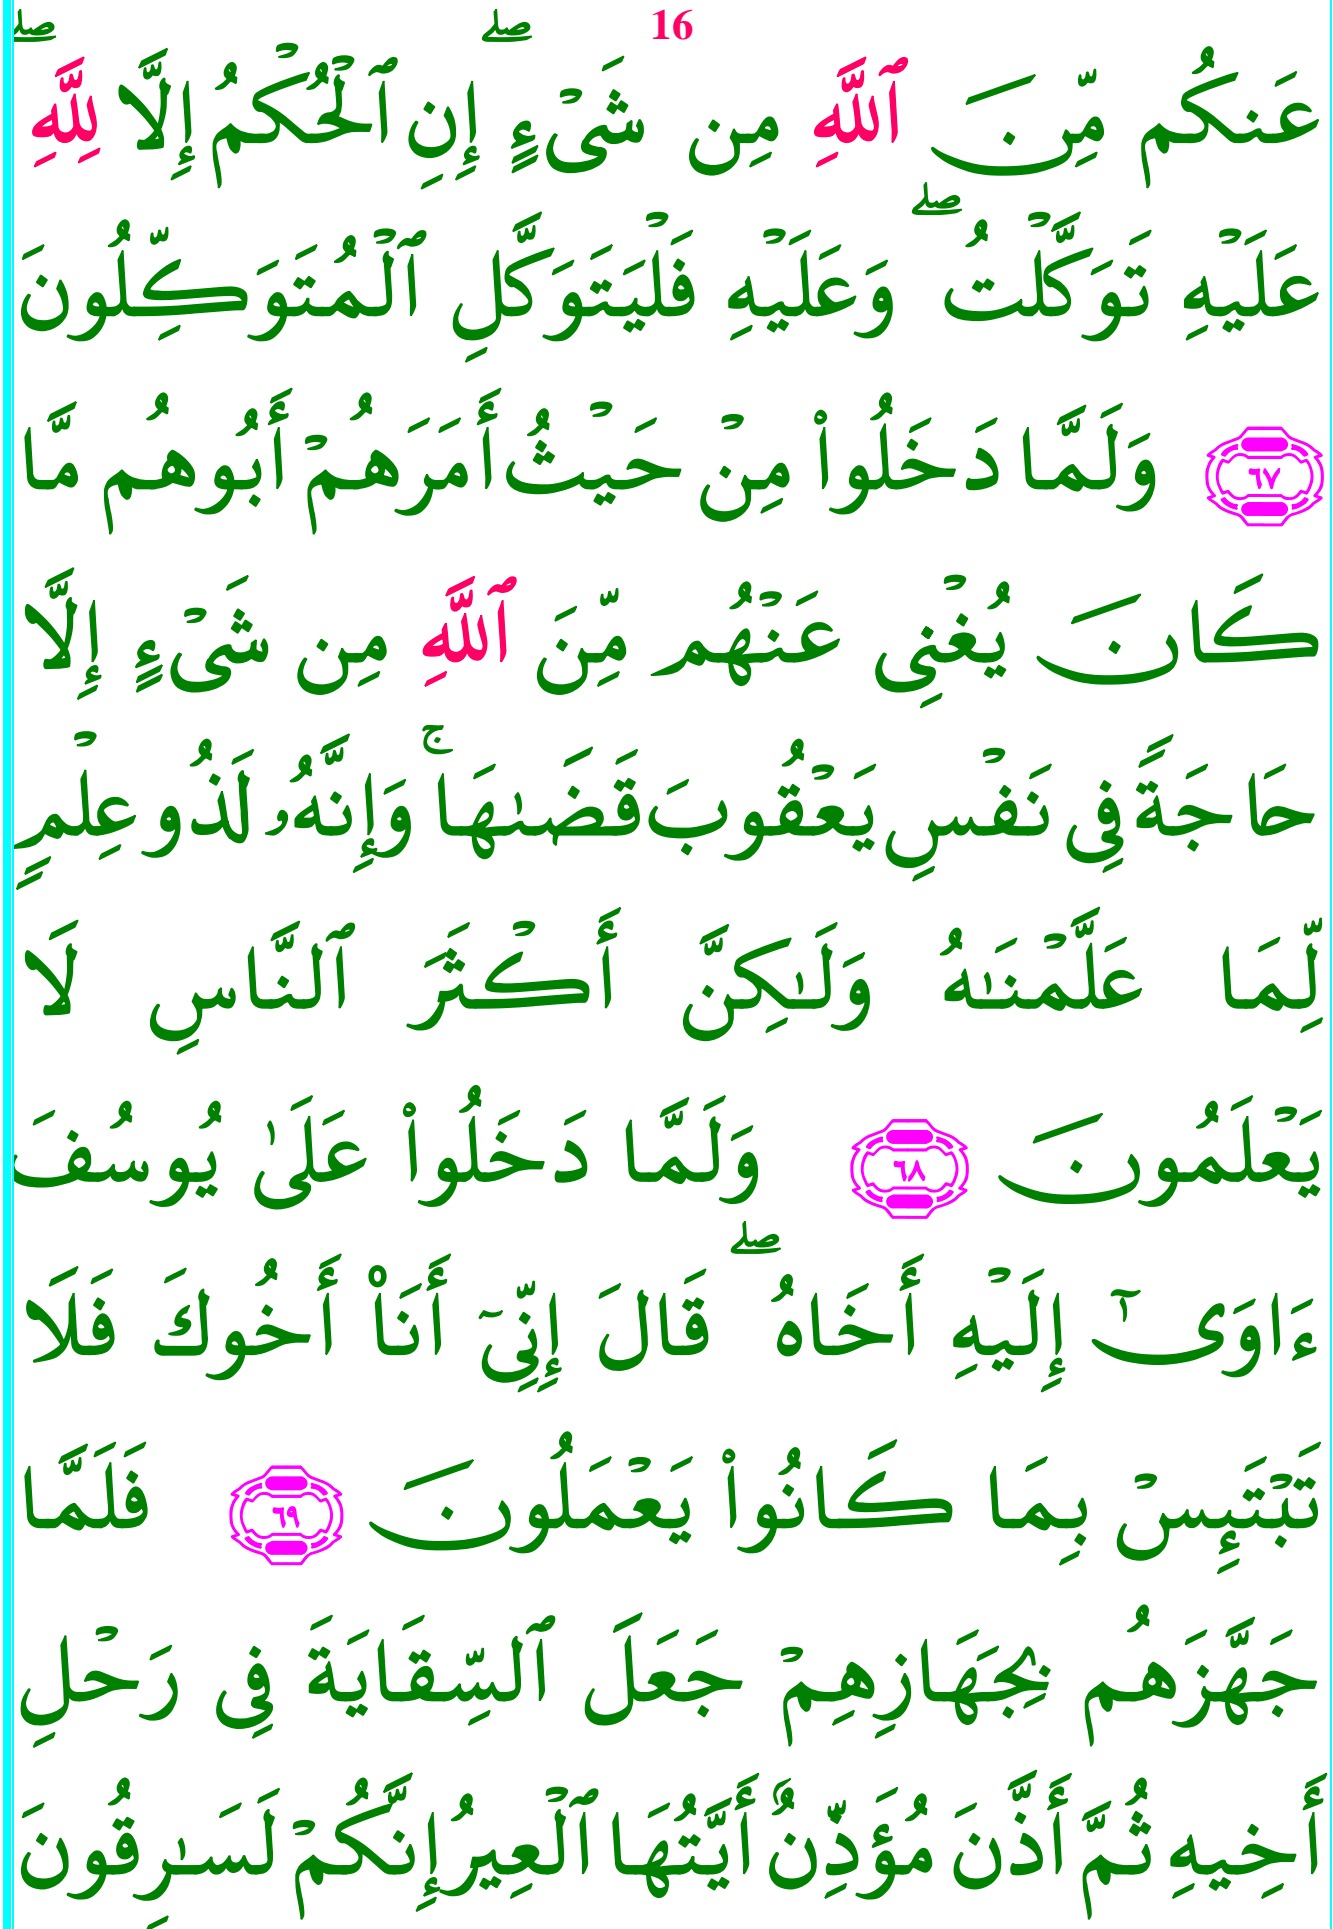 16
عَنكُم مِّنَ ٱللَّهِ مِن شَىْءٍ ۖ إِنِ ٱلْحُكْمُ إِلَّا لِلَّهِ ۖ
عَلَيْهِ تَوَكَّلْتُ ۖ وَعَلَيْهِ فَلْيَتَوَكَّلِ ٱلْمُتَوَكِّلُونَ
٦٧ وَلَمَّا دَخَلُوا۟ مِنْ حَيْثُ أَمَرَهُمْ أَبُوهُم مَّا
كَانَ يُغْنِى عَنْهُم مِّنَ ٱللَّهِ مِن شَىْءٍ إِلَّا
حَاجَةً فِى نَفْسِ يَعْقُوبَ قَضَىٰهَا ۚ وَإِنَّهُۥ لَذُو عِلْمٍ
لِّمَا عَلَّمْنَـٰهُ وَلَـٰكِنَّ أَكْثَرَ ٱلنَّاسِ لَا
يَعْلَمُونَ ٦٨ وَلَمَّا دَخَلُوا۟ عَلَىٰ يُوسُفَ
ءَاوَىٰٓ إِلَيْهِ أَخَاهُ ۖ قَالَ إِنِّىٓ أَنَا۠ أَخُوكَ فَلَا
تَبْتَئِسْ بِمَا كَانُوا۟ يَعْمَلُونَ ٦٩ فَلَمَّا
جَهَّزَهُم بِجَهَازِهِمْ جَعَلَ ٱلسِّقَايَةَ فِى رَحْلِ
أَخِيهِ ثُمَّ أَذَّنَ مُؤَذِّنٌ أَيَّتُهَا ٱلْعِيرُ إِنَّكُمْ لَسَـٰرِقُونَ